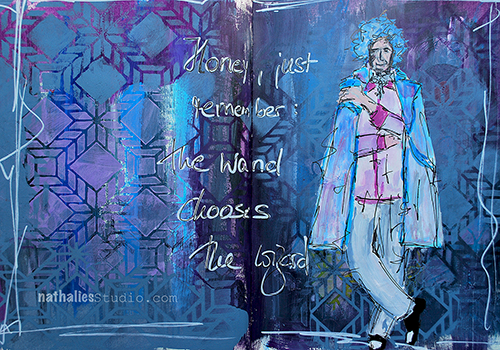 Honey, just
remember:
the wand
chooses
the wizard
nathaliesstudio.com